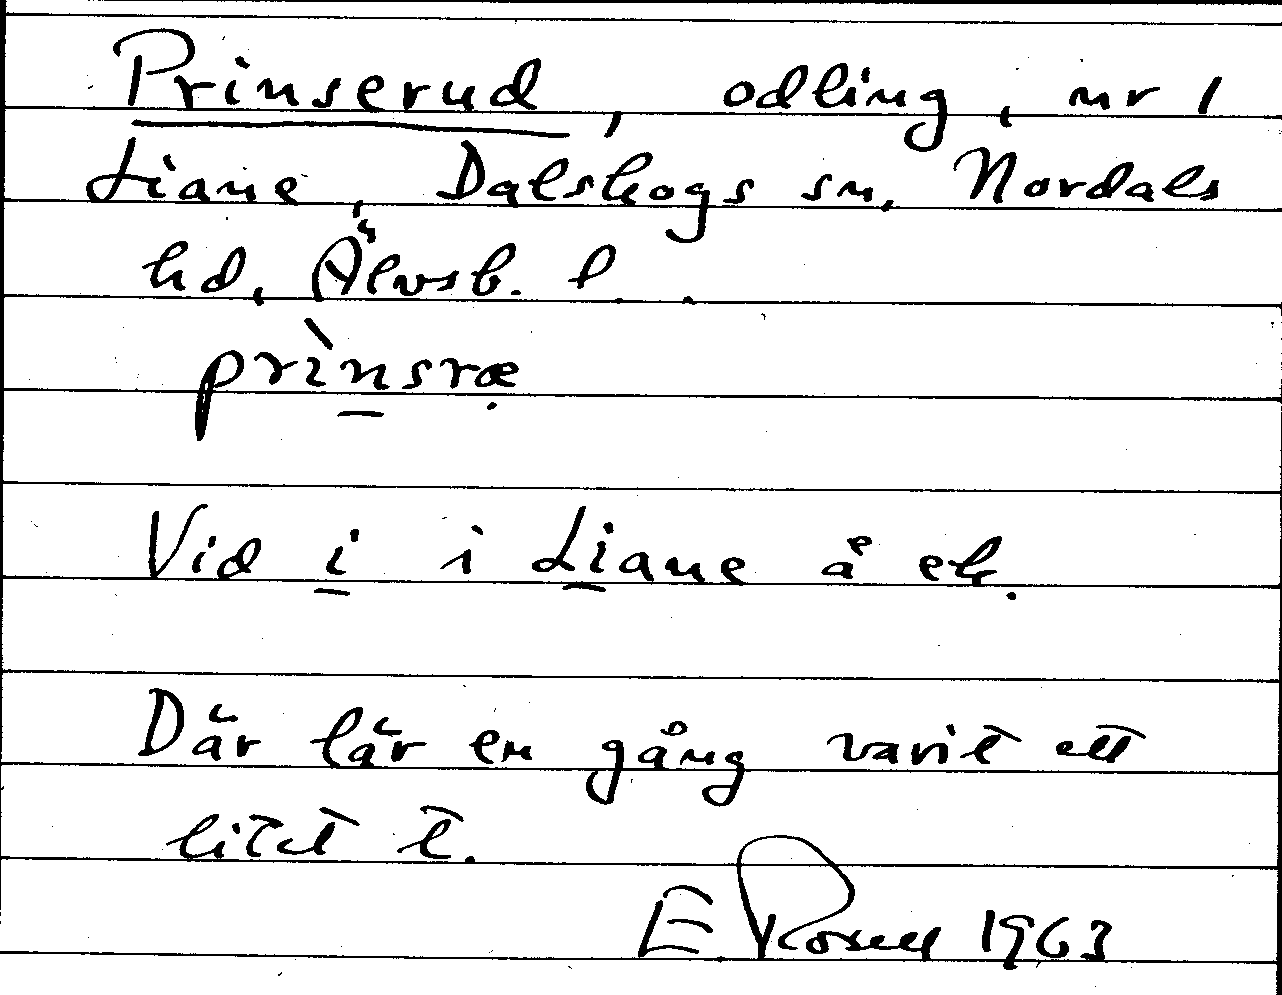 Prinserud, odling, nr 1
Liane, Dalskogs sn, Nordals
hd, Älvsb. l.
prìnsræ̣
Vid i i Liane å ek.
Där lär en gång varit ett
litet t.
E. Rosell 1963